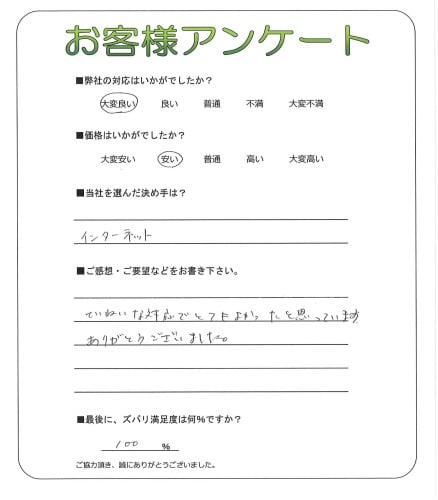 お客様アンケート
■弊社の対応はいかがでしたか？
大変良い 良い 普通 不満 大変不満
■価格はいかがでしたか？
大変安い 安い 普通 高い 大変高い
■当社を選んだ決め手は？
インターネット
■ご感想・ご要望などをお書き下さい。
ていねいな対応でとてもよかったと思っています
ありがとうございました。
■最後に、ズバリ満足度は何％ですか？
100 ％
ご協力頂き、誠にありがとうございました。